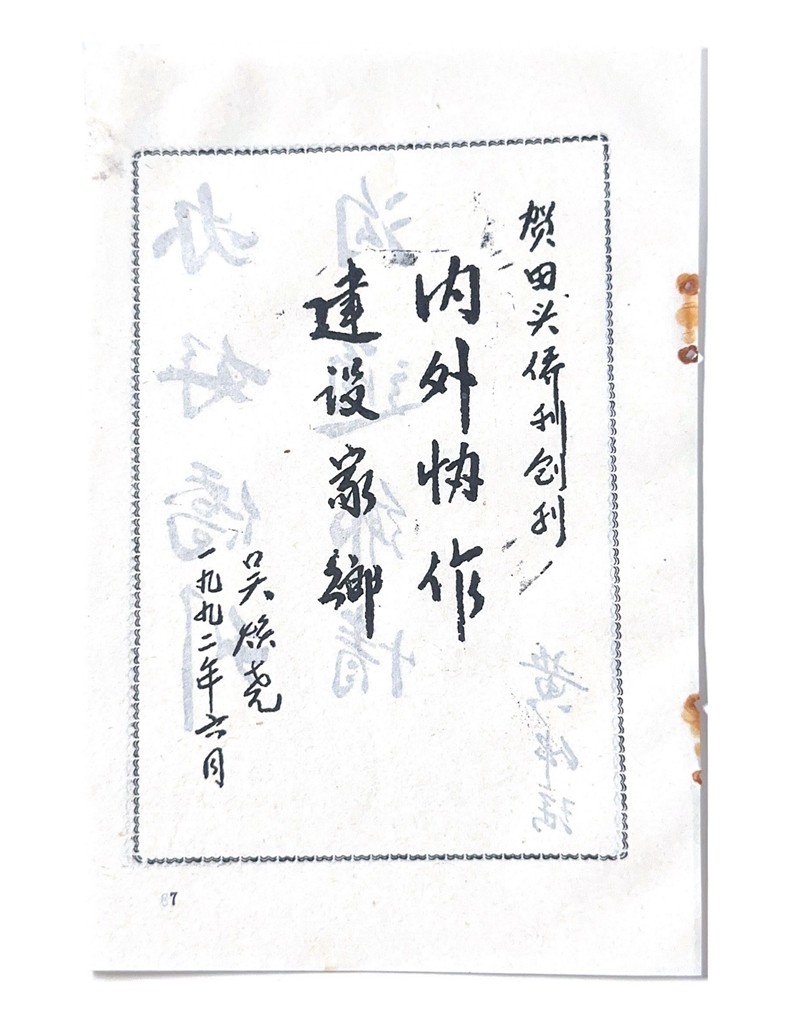 贺田头侨刊创刊
内外协作
建设家乡
吴焕尧
一九九二年六月
7